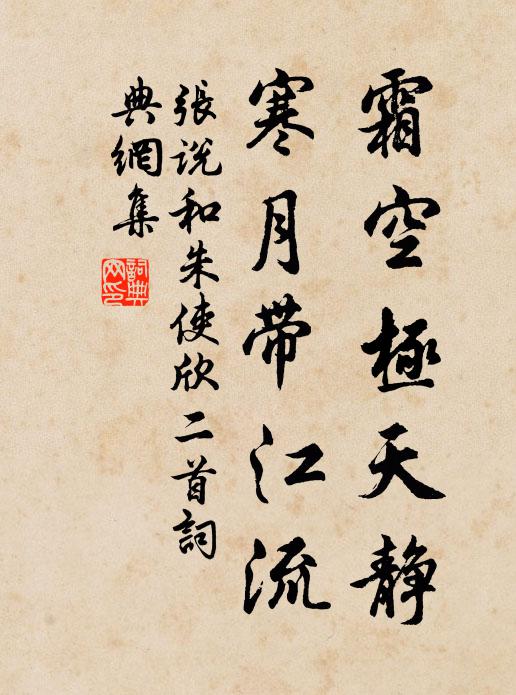 霜空極天静
寒月帶江流
張説和朱使欣二首詞
典網集
詞典
网印